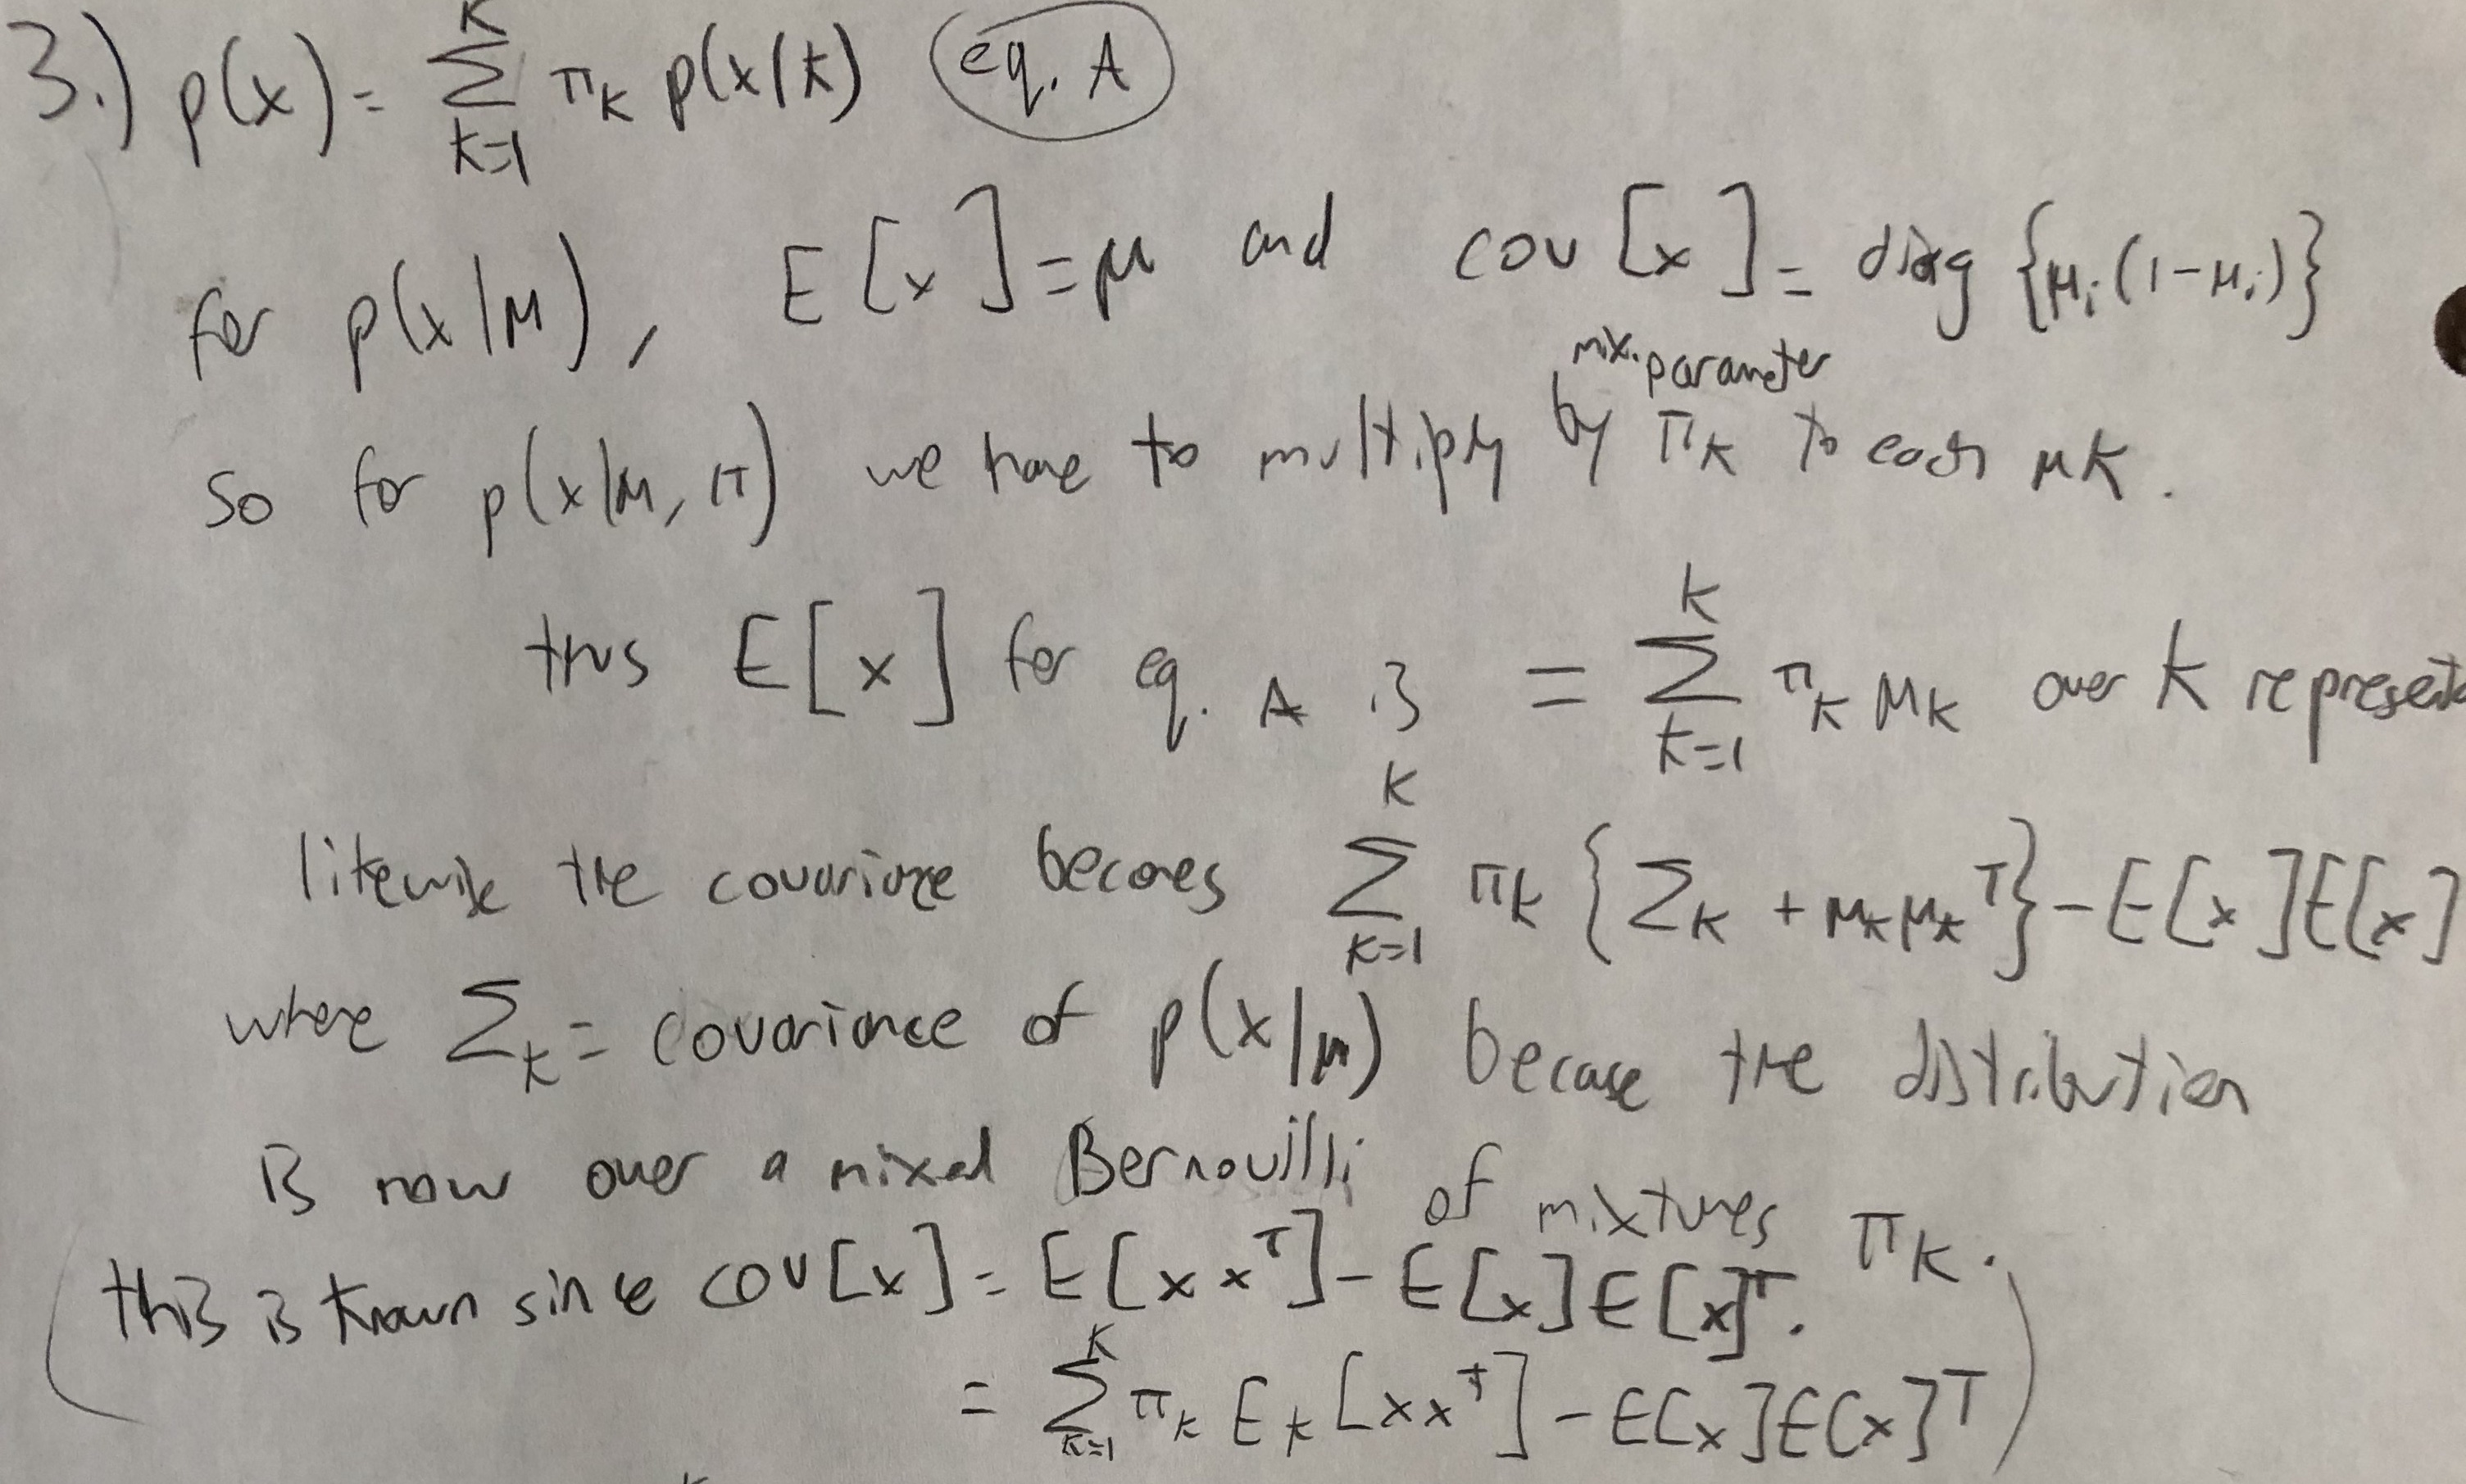 3.) p(x) = Σ_{k=1}^{K} π_k p(x|k) eq. A
for p(x|μ), E[x] = μ and cov[x] = diag {μ_i(1-μ_i)}
mix. parameter
so for p(x|μ, π) we have to multiply by π_k to each μk.
thus E[x] for eq. A is = Σ_{k=1}^{K} π_k μ_k over k represent
likewise the covariance becomes Σ_{k=1}^{K} π_k {Σ_k + μ_k μ_k^T} - E[x]E[x]
where Σ_k = covariance of p(x|μ) because the distribution
is now over a mixed Bernouilli of mixtures π_k.
(this is known since cov[x] = E[xx^T] - E[x]E[x]^T.
= Σ_{k=1}^{K} π_k E_k[xx^T] - E[x]E[x]^T)